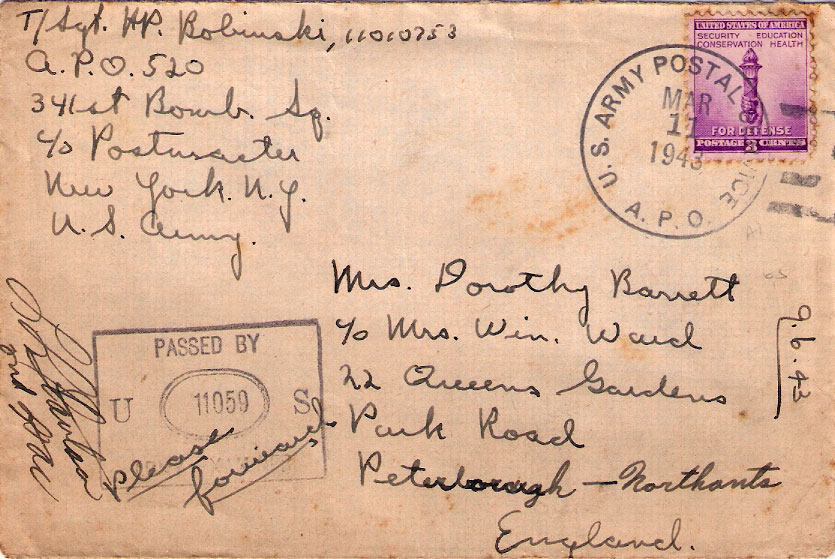 T/Sgt. H.P. Bobinski, 11010753
A.P.O. 520
341st Bomb. Sq.
c/o Postmaster
New York. N.Y.
U.S. Army.
UNITED STATES OF AMERICA
SECURITY EDUCATION
CONSERVATION HEALTH
FOR DEFENSE
POSTAGE 3 CENTS
U.S. ARMY POSTAL SERVICE
MAR
11
1943
A.P.O.
Mrs. Dorothy Barrett
c/o Mrs. Win. Ward
22 Queens Gardens
Park Road
Peterborough — Northants
England.
9.6.43
PASSED BY
U 11059 S
Please
forward